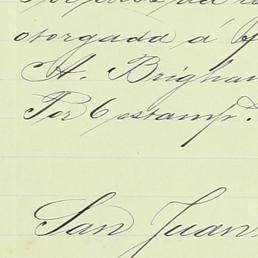 otorgada á
A. Brigham
Por 6 estamp.
San Juan